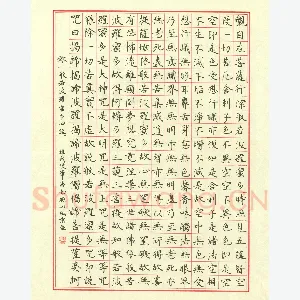 觀自在菩薩行深般若波羅蜜多時照見五蘊皆空
度一切苦厄舍利子色不異空空不異色色即是空
空即是色受想行識亦復如是舍利子是諸法空相
不生不滅不垢不淨不增不減是故空中無色無受
想行識無眼耳鼻舌身意無色聲香味觸法無眼界
乃至無意識界無無明亦無無明盡乃至無老死亦
無老死盡無苦集滅道無智亦無得以無所得故菩
提薩埵依般若波羅蜜多故心無罣礙無罣礙故無
有恐怖遠離顛倒夢想究竟涅槃三世諸佛依般若
波羅蜜多故得阿耨多羅三藐三菩提故知般若波
羅蜜多是大神咒是大明咒是無上咒是無等等咒
能除一切苦真實不虛故說般若波羅蜜多咒即說
咒曰揭諦揭諦波羅揭諦波羅僧揭諦菩提薩婆訶
般若波羅蜜多心經